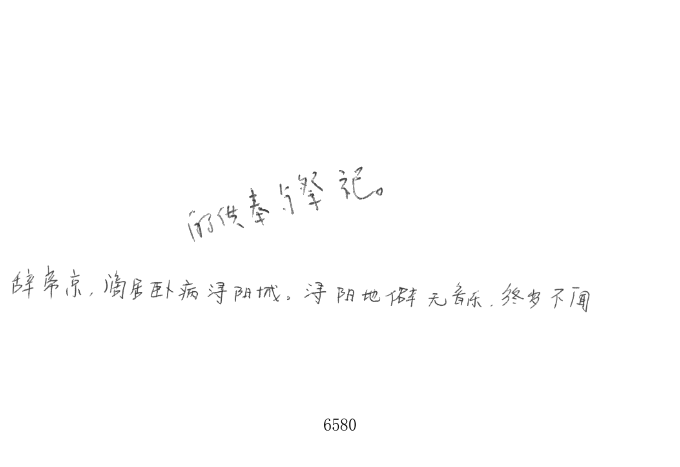 的供奉与祭祀。
辞帝京，谪居卧病浔阳城。浔阳地僻无音乐，终岁不闻
6580